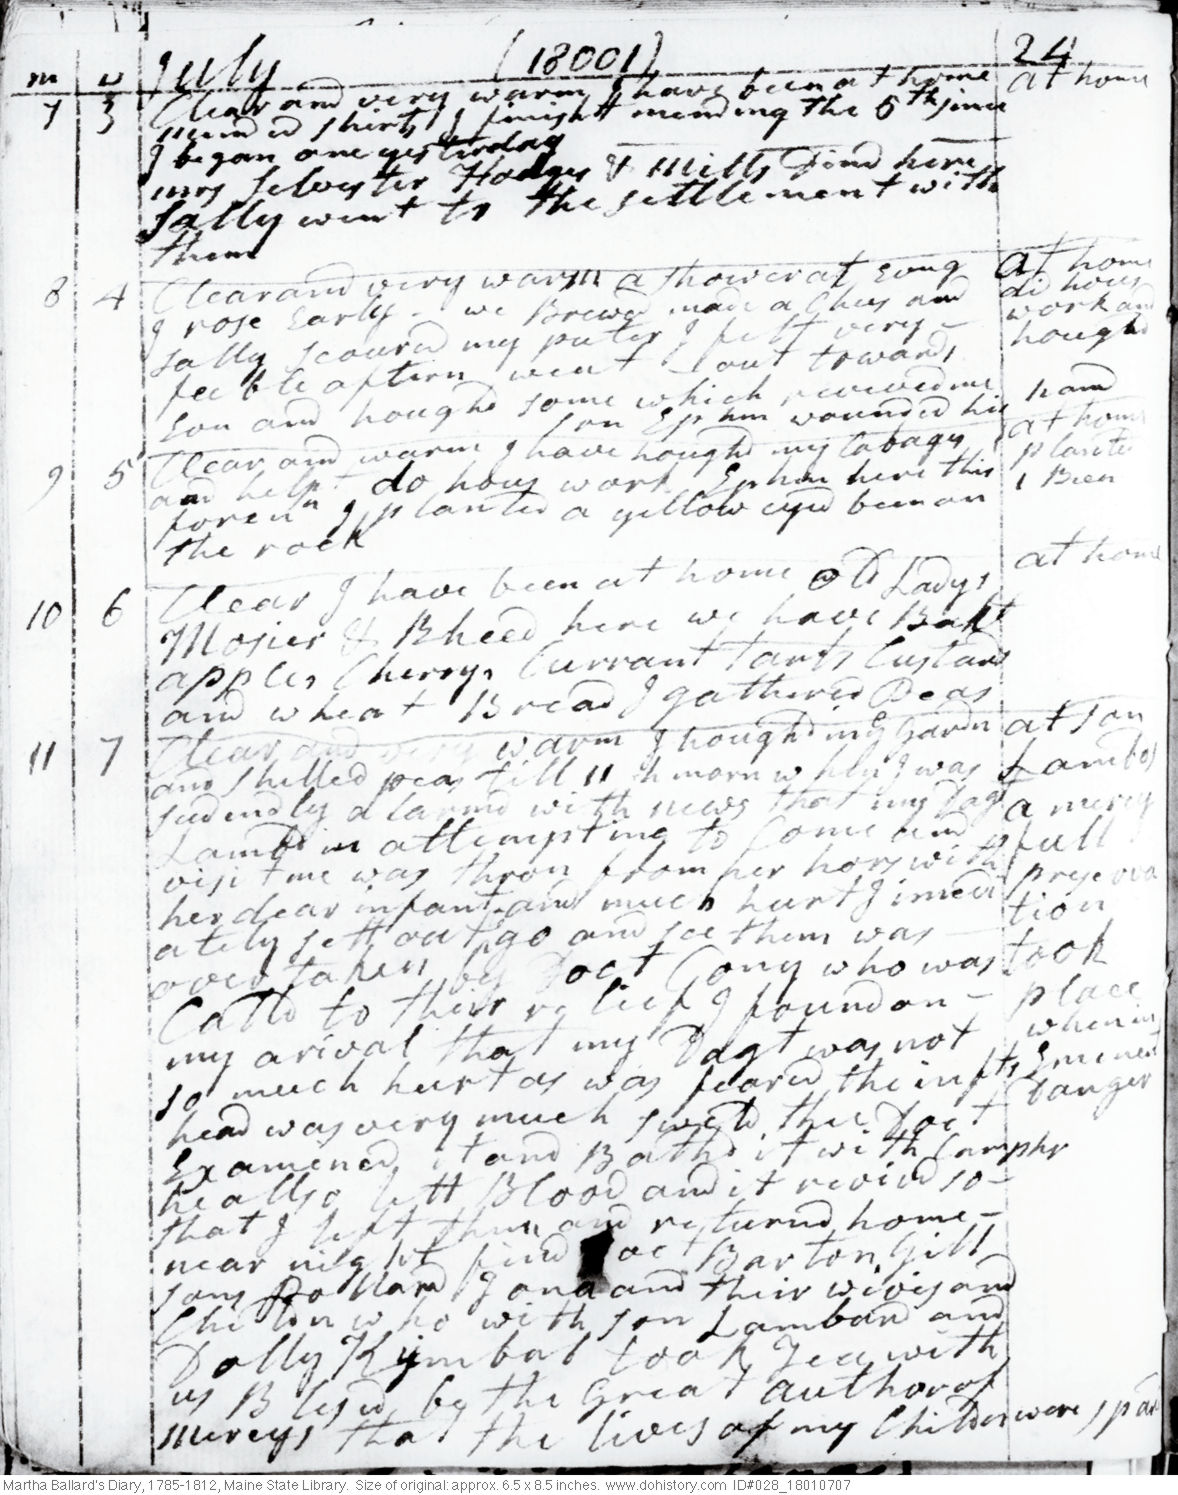 July (18001) 24
m w
7 3 Clear and very warm I have been at home at home
mend d shirts I finisht mending the 5th since
I began one yesterday
mrs Selvester Hodges & Mills Dind here
Sally went to the settlement with
them
8 4 Clear and very warm a shower at Evng at home
I rose Early - we Brewd made a Chees and did hous
Sally scourd my puter I felt very - work and
feeble aftern went out towards hought
Eon and hought some which revived me
son Ephm wounded his hand
9 5 Clear and warm I have hought my Cabags at home
and helpt do hous work Ephm here this planted
foren n I planted a yellow eyd been on 1 Been
the rock
10 6 Clear I have been at home old Ladys at home
Mosier & Bheed here we have Bakt
apples Cherrys Currant tarts Custards
and wheat Bread I gathered Peas
11 7 Clear and very warm I hought in gardn at son
and shelled peas till 11 h morn when I was Lambds
sudendly alarmd with news that my Dagt a mercy
Lambd in attempting to Come and full
visit me was thron from her hors with preserva
her dear infant and much hurt I imedi tion
ately sett out go and see them was took
over taken by Doct Cony who was place
Calld to their relief I found on - when in
my arival that my Dagt was not Eminent
so much hurt as was feared the infts Danger
head was very much sweld the Doct
Examened it and Bathd it with Camphr
he allso lett Blood and it revivd so -
that I left them and returnd home -
near night find Doct Barton, Gill
sons Pollard Jona and their wives and
Childn who with son Lambard and
Dolly Kimbal took Tea with
us Blesd be the Great author of
mercys that the lives of my Childen were spard
Martha Ballard's Diary, 1785-1812, Maine State Library. Size of original: approx. 6.5 x 8.5 inches. www.dohistory.com ID#028_18010707